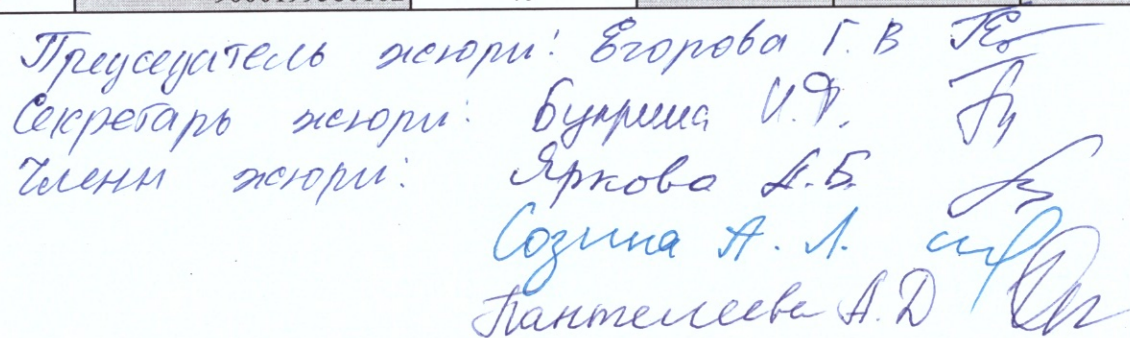 Председатель жюри: Егорова Г. В
Секретарь жюри: И.Ф.
Члены жюри: Яркова А.Б.
Созина А. Л.
Пантелеева А.Д